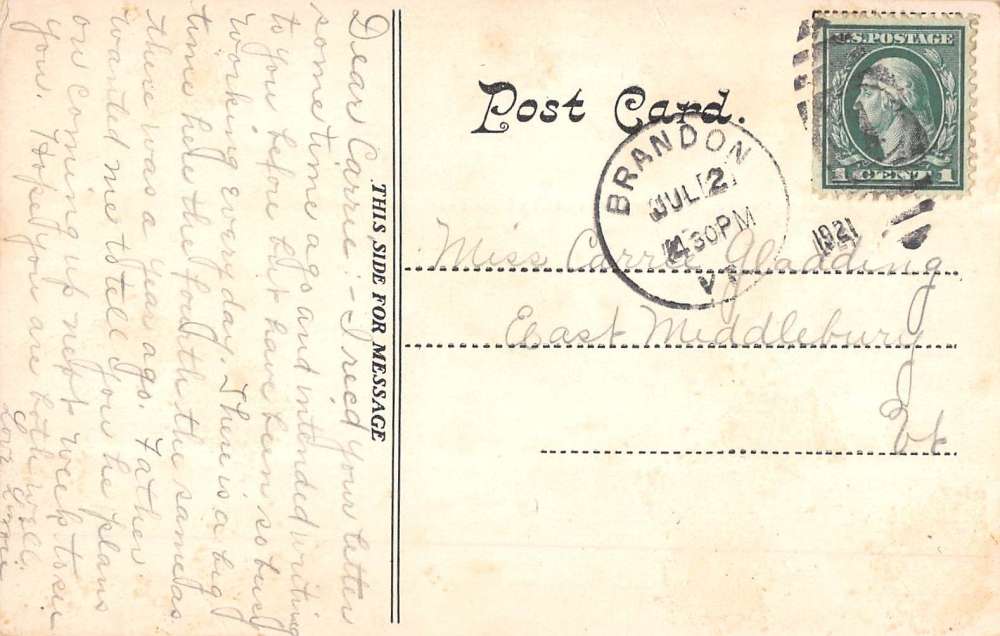 Post Card.
U.S. POSTAGE
1 CENT 1
BRANDON
JUL 2
4 30 PM
VT
1921
THIS SIDE FOR MESSAGE
Miss Carrie Gladding
East Middlebury
Vt
Dear Carrie:- I rec'd your letter
sometime ago and intended writing
to you before but have been so busy
working every day. There is a big
time here the fourth the same as
there was a year ago. Father
wanted me to tell you he plans
on coming up next week to see
you. Hope you are both well.
Love